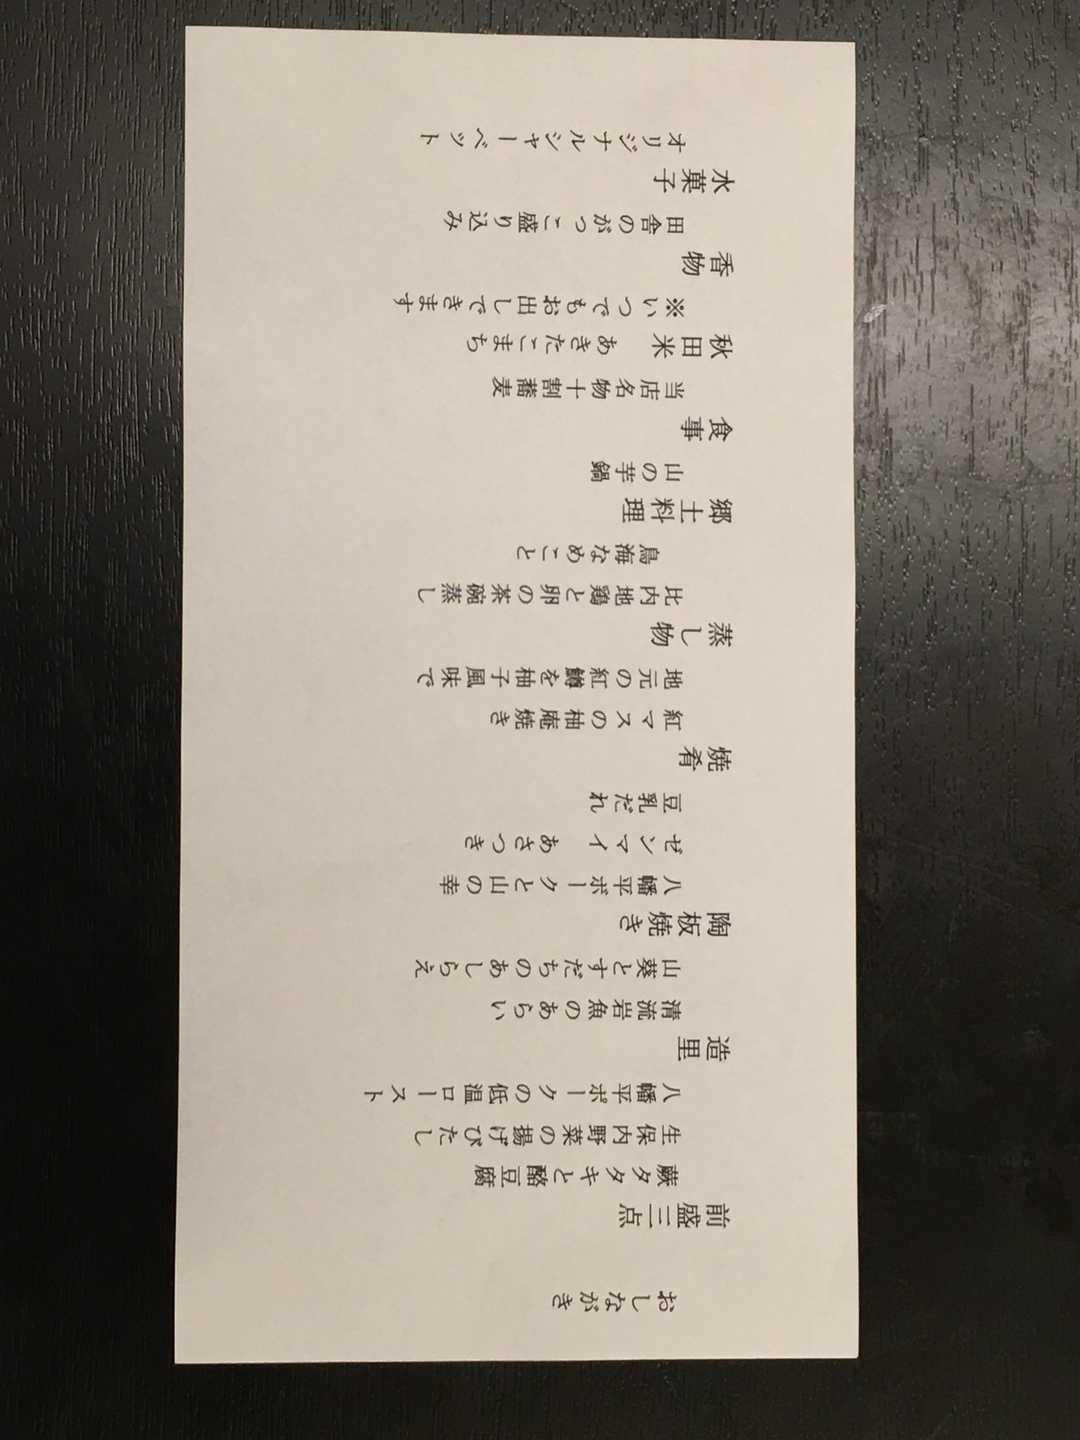 おしながき
前盛三点
蕨タタキと酪豆腐
生保内野菜の揚げびたし
八幡平ポークの低温ロースト
造里
清流岩魚のあらい
山葵とすだちのあしらえ
陶板焼き
八幡平ポークと山の幸
ゼンマイ　あさつき
豆乳だれ
焼肴
紅マスの柚庵焼き
地元の紅鱒を柚子風味で
蒸し物
比内地鶏と卵の茶碗蒸し
鳥海なめこと
郷土料理
山の芋鍋
食事
当店名物十割蕎麦
秋田米　あきたこまち
※いつでもお出しできます
香物
田舎のがっこ盛り込み
水菓子
オリジナルシャーベット